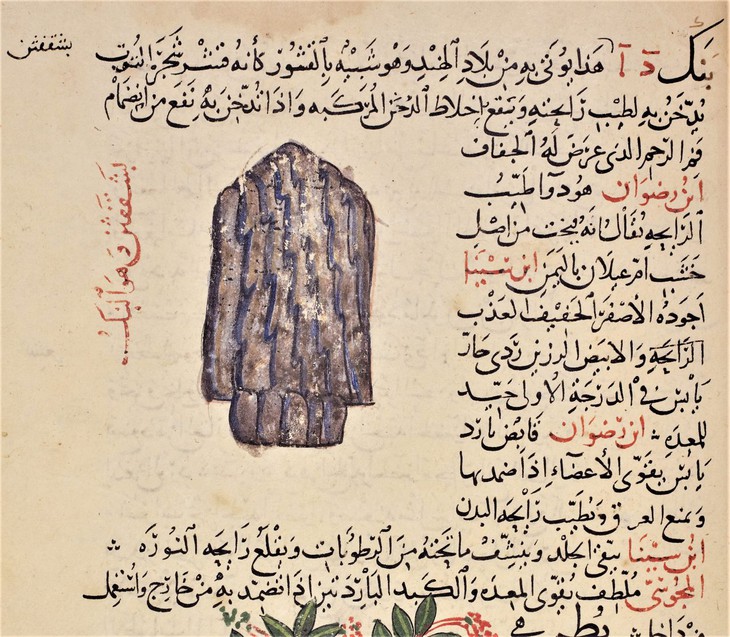 بشقفثن
بنك د آ هذا يؤتى به من بلاد الهند وهو شبيه بالقشور كأنه قشر شجر التوت
يدخن به لطيب رائحته ويقع اخلاط الدخن المركبه واذا تدخن به نفع من انضمام
فم الرحم الذى عرض له الجفاف
ابن رضوان هو دوا طيب
الرائحه يقال انه ينحت من اصل
خشب ام غيلان باليمن ابن سينا
اجوده الاصفر الخفيف العذب
الرائحة والابيض الرزين ردى حار
يابس فى الدرجة الاولى جيد
للمعده ابن رضوان قابض بارد
يابس يقوى الأعضاء اذا ضمد بها
ويمنع العرق ويطيب رائحه البدن
ابن سينا ينقى الجلد وينشف ما تحته من الرطوبات ويقلع رائحه النوره
المجوسى ملطف يقوى المعده والكبد الباردتين اذا تضمد به من خارج واستعمل
بشقفثن وهو البنك